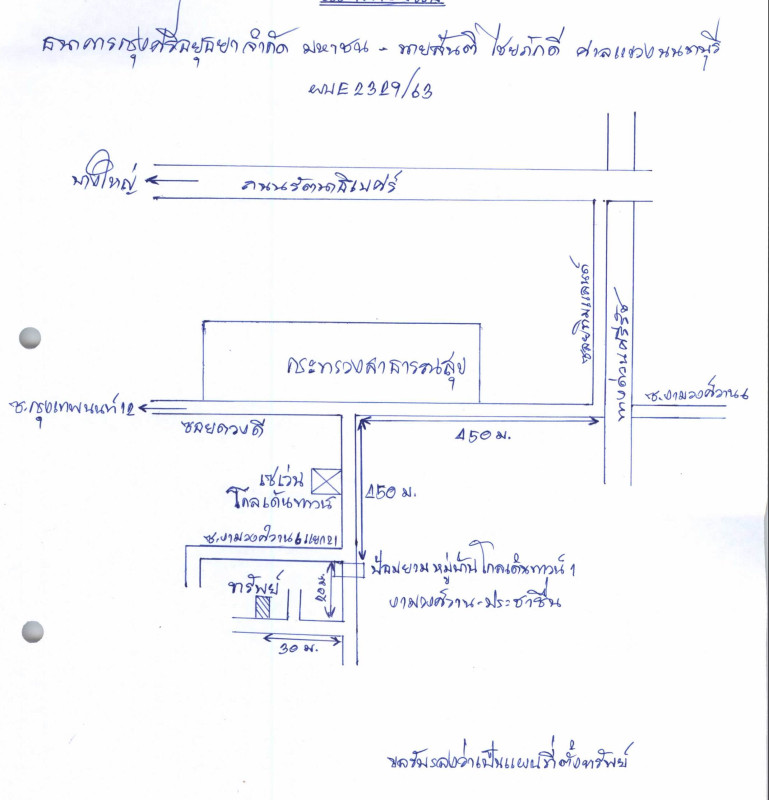 ธนาคารกรุงศรีอยุธยา จำกัด มหาชน - นายสันติ ไชยภักดี ศาลแขวงนนทบุรี
ผบE2329/63
บางใหญ่
ถนนรัตนาธิเบศร์
กระทรวงสาธารณสุข
ซ.กรุงเทพนนท์ 12
ซอยดวงดี
ซ.งามวงศ์วาน 6
450 ม.
เซเว่น
โกลเด้นทาวน์
450 ม.
ซ.งามวงศ์วาน 6 แยก 21
ป้อมยามหมู่บ้านโกลเด้นทาวน์ 1
งามวงศ์วาน-ประชาชื่น
ทรัพย์
20ม.
30 ม.
ขอรับรองว่าเป็นแผนที่ตั้งทรัพย์